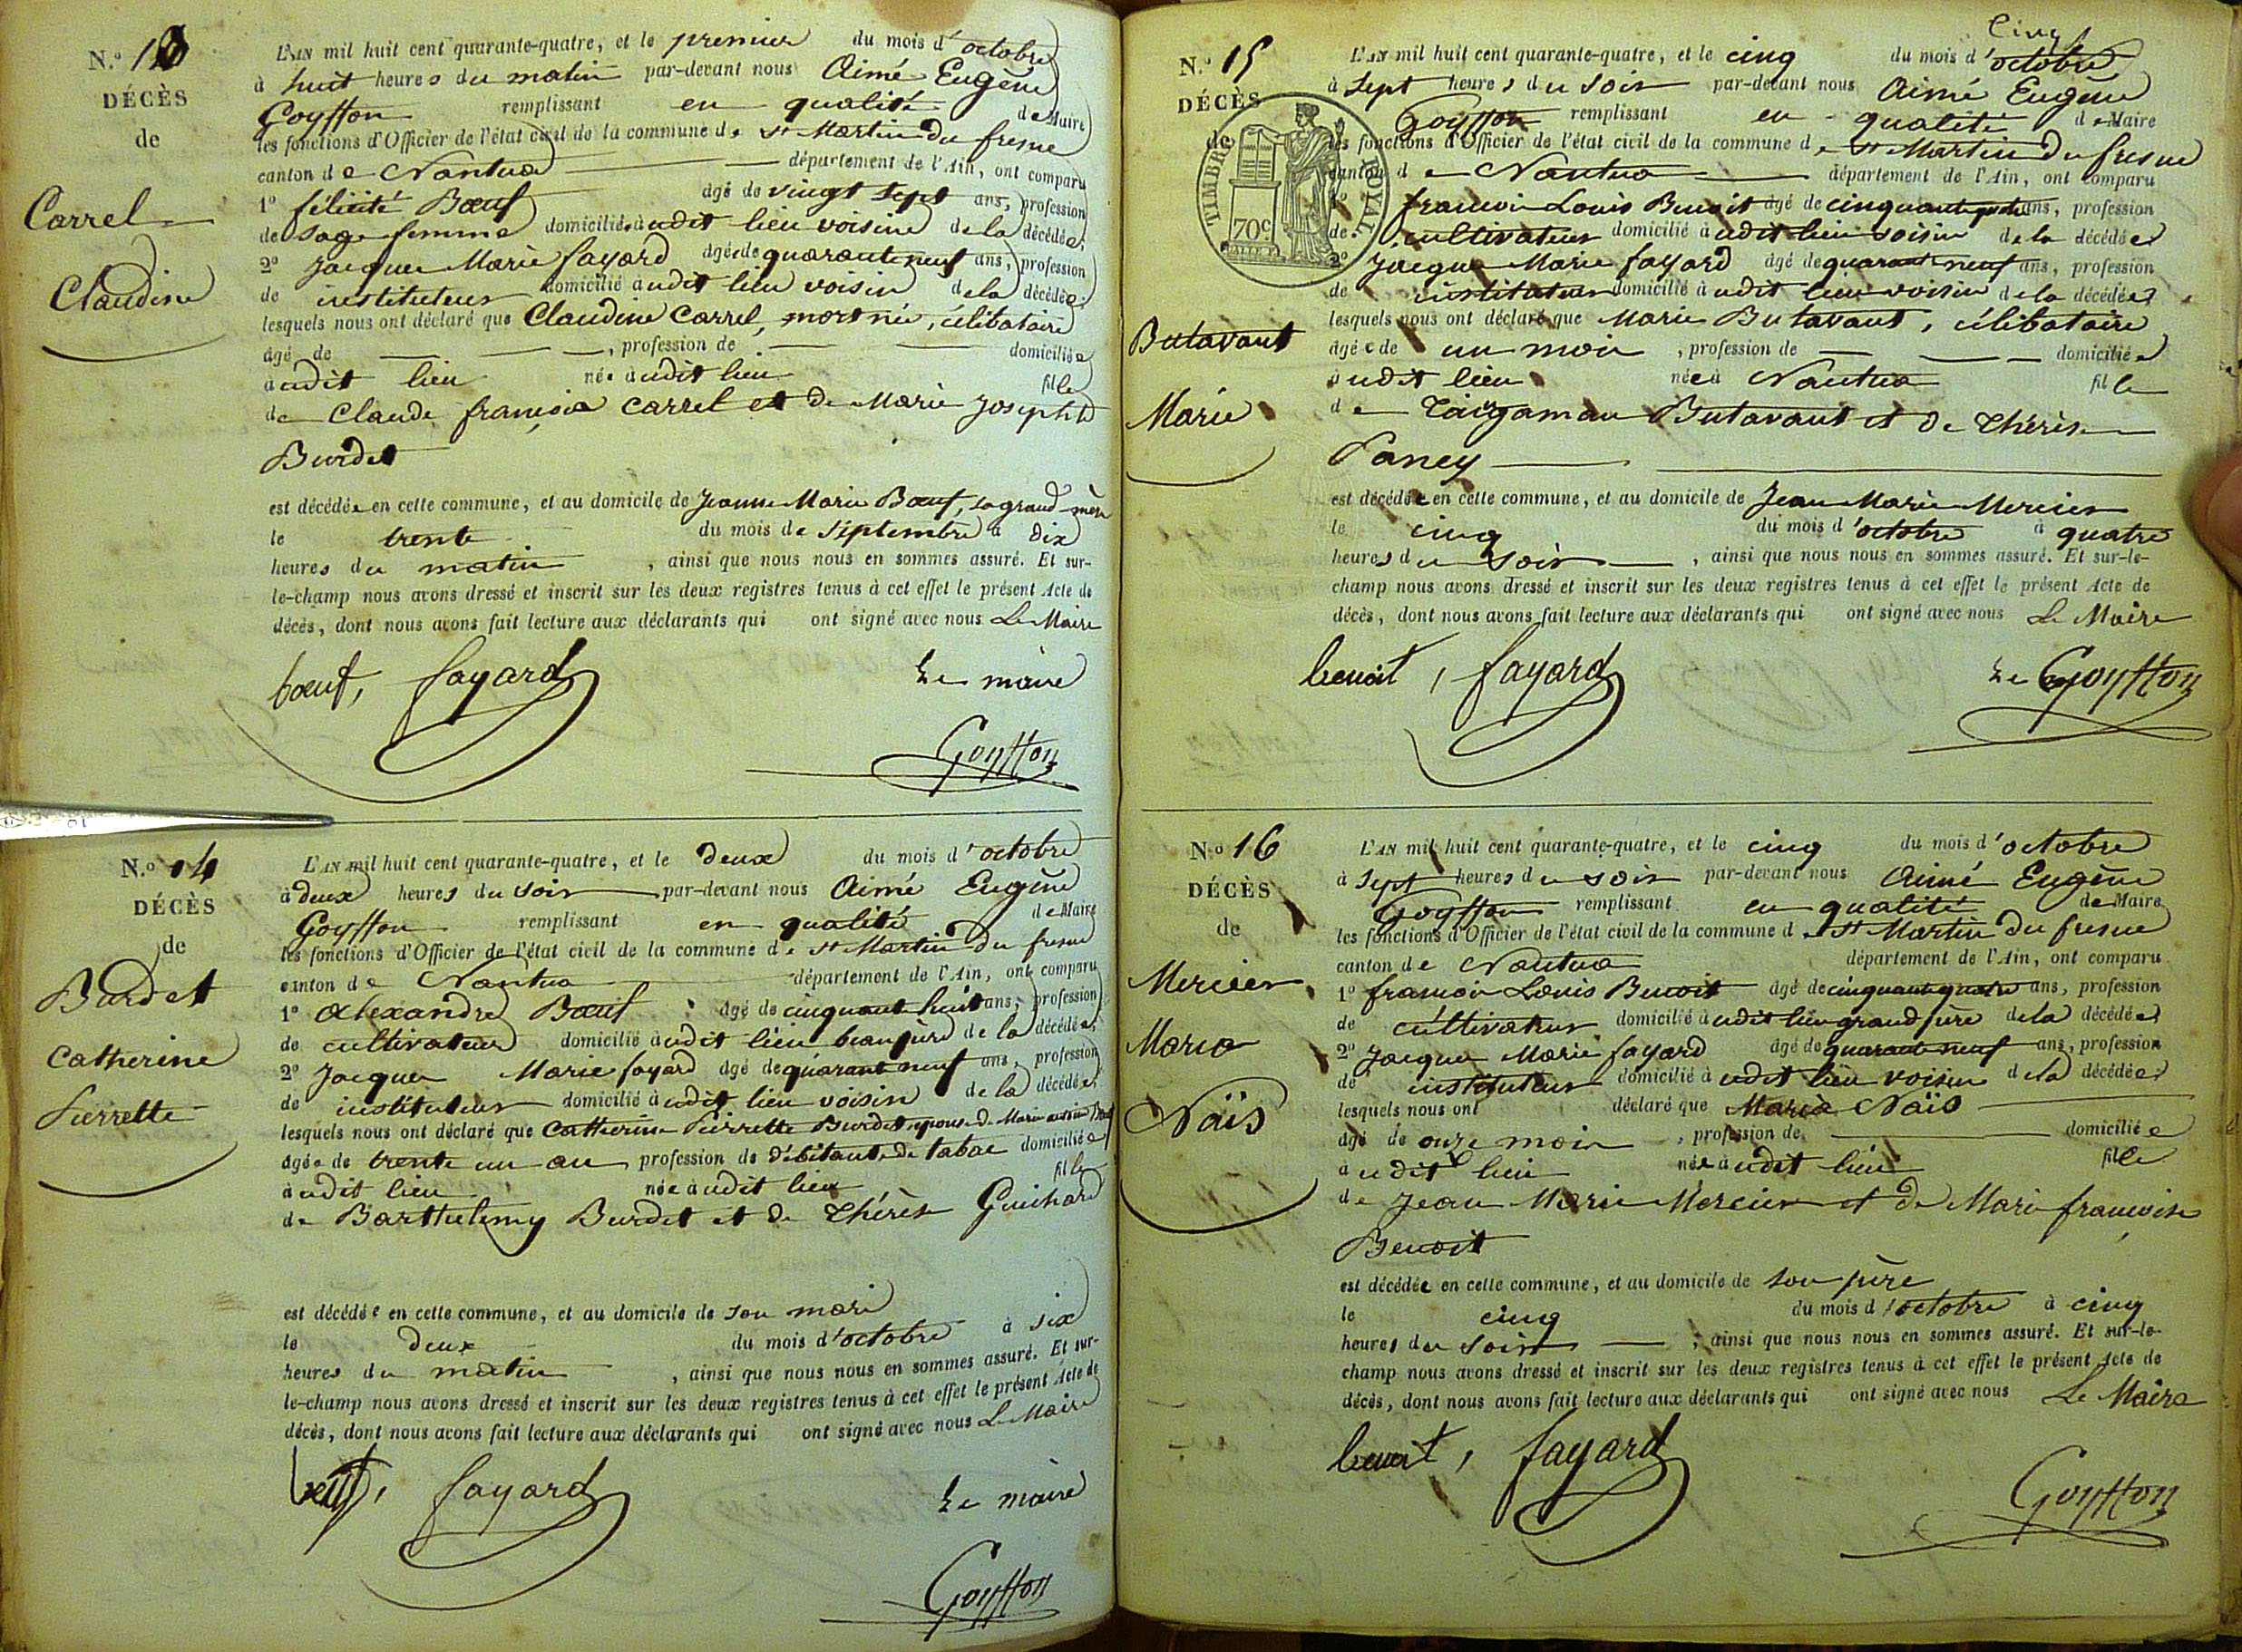 N.º 13
DÉCÈS
de
Carrel
Claudine
L'AN mil huit cent quarante-quatre, et le premier du mois d'octobre
à huit heures du matin par-devant nous Aimé Eugène
Goyffon remplissant en qualité de Maire
les fonctions d'Officier de l'état civil de la commune de St Martin du fresne
canton de Nantua département de l'Ain, ont comparu
1º félicité Bœuf âgé de vingt sept ans, profession
de sage femme domiciliée audit lieu voisine de la décédée;
2º Jacques Marie fayard âgé de quarante neuf ans, profession
de instituteur domicilié audit lieu voisin de la décédée;
lesquels nous ont déclaré que Claudine Carrel, mort née, célibataire
âgé de , profession de domiciliée
audit lieu née audit lieu fille
de Claude françois Carrel et de Marie Josephte
Burdet
est décédée en cette commune, et au domicile de Jeanne Marie Bœuf, sa grand-mère
le trente du mois de septembre à dix
heures du matin , ainsi que nous nous en sommes assuré. Et sur-
le-champ nous avons dressé et inscrit sur les deux registres tenus à cet effet le présent Acte de
décès, dont nous avons fait lecture aux déclarants qui ont signé avec nous Le Maire
bœuf, fayard Le maire
Goyffon
N.º 14
DÉCÈS
de
Burdet
Catherine
Pierrette
L'AN mil huit cent quarante-quatre, et le deux du mois d'octobre
à deux heures du soir par-devant nous Aimé Eugène
Goyffon remplissant en qualité de Maire
les fonctions d'Officier de l'état civil de la commune de St Martin du fresne
canton de Nantua département de l'Ain, ont comparu
1º Alexandre Bœuf âgé de cinquante huit ans, profession
de cultivateur domicilié audit lieu beau père de la décédée;
2º Jacques Marie fayard âgé de quarante neuf ans, profession
de instituteur domicilié audit lieu voisin de la décédée;
lesquels nous ont déclaré que Catherine Pierrette Burdet épouse de Marie
âgée de trente un an profession de débitante de tabac domiciliée
audit lieu née audit lieu fille
de Barthelemy Burdet et de Thérèse Guichard
est décédée en cette commune, et au domicile de son mari
le deux du mois d'octobre à six
heures du matin , ainsi que nous nous en sommes assuré. Et sur-
le-champ nous avons dressé et inscrit sur les deux registres tenus à cet effet le présent Acte de
décès, dont nous avons fait lecture aux déclarants qui ont signé avec nous Le Maire
bœuf, fayard Le maire
Goyffon
N.º 15
DÉCÈS
de
Butavant
Marie
TIMBRE ROYAL
70c
Cinq
L'AN mil huit cent quarante-quatre, et le cinq du mois d'octobre
à sept heures du soir par-devant nous Aimé Eugène
Goyffon remplissant en qualité de Maire
les fonctions d'Officier de l'état civil de la commune de St Martin du fresne
canton de Nantua département de l'Ain, ont comparu
1º francois Louis Benoit âgé de cinquante quatre ans, profession
de cultivateur domicilié audit lieu voisin de la décédée
2º Jacques Marie fayard âgé de quarante neuf ans, profession
de instituteur domicilié audit lieu voisin de la décédée
lesquels nous ont déclaré que Marie Butavant, célibataire
âgée de un mois , profession de domiciliée
audit lieu née à Nantua fille
de Butavant et de Thérèse
Paney
est décédée en cette commune, et au domicile de Jean Marie Mercier
le cinq du mois d'octobre à quatre
heures du soir , ainsi que nous nous en sommes assuré. Et sur-le-
champ nous avons dressé et inscrit sur les deux registres tenus à cet effet le présent Acte de
décès, dont nous avons fait lecture aux déclarants qui ont signé avec nous Le Maire
benoit, fayard Le Goyffon
Nº 16
DÉCÈS
de
Mercier
Maria
Naïs
L'AN mil huit cent quarante-quatre, et le cinq du mois d'octobre
à sept heures du soir par-devant nous Aimé Eugène
Goyffon remplissant en qualité de Maire
les fonctions d'Officier de l'état civil de la commune de St Martin du fresne
canton de Nantua département de l'Ain, ont comparu
1º francois Louis Benoit âgé de cinquante quatre ans, profession
de cultivateur domicilié audit lieu grand père de la décédée
2º Jacques Marie fayard âgé de quarante neuf ans, profession
de instituteur domicilié audit lieu voisin de la décédée
lesquels nous ont déclaré que Maria Naïs
âgé de onze mois , profession de domiciliée
audit lieu née audit lieu fille
de Jean Marie Mercier et de Marie francoise
Benoit
est décédée en cette commune, et au domicile de son père
le cinq du mois d'octobre à cinq
heures du soir , ainsi que nous nous en sommes assuré. Et sur-le-
champ nous avons dressé et inscrit sur les deux registres tenus à cet effet le présent Acte de
décès, dont nous avons fait lecture aux déclarants qui ont signé avec nous Le Maire
benoit, fayard
Goyffon